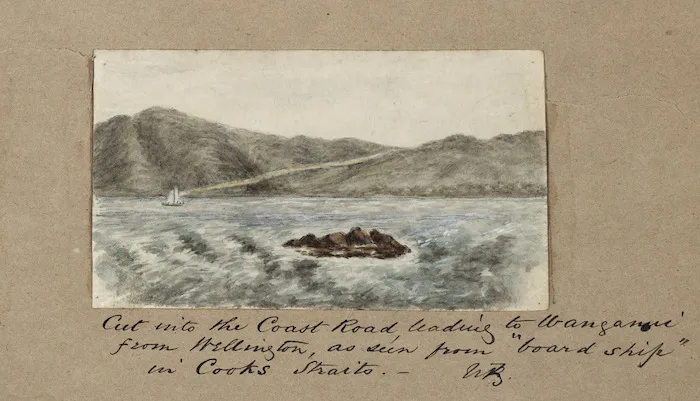 Cut into the Coast Road leading to Wanganui
from Wellington, as seen from "board ship"
in Cooks Straits. —